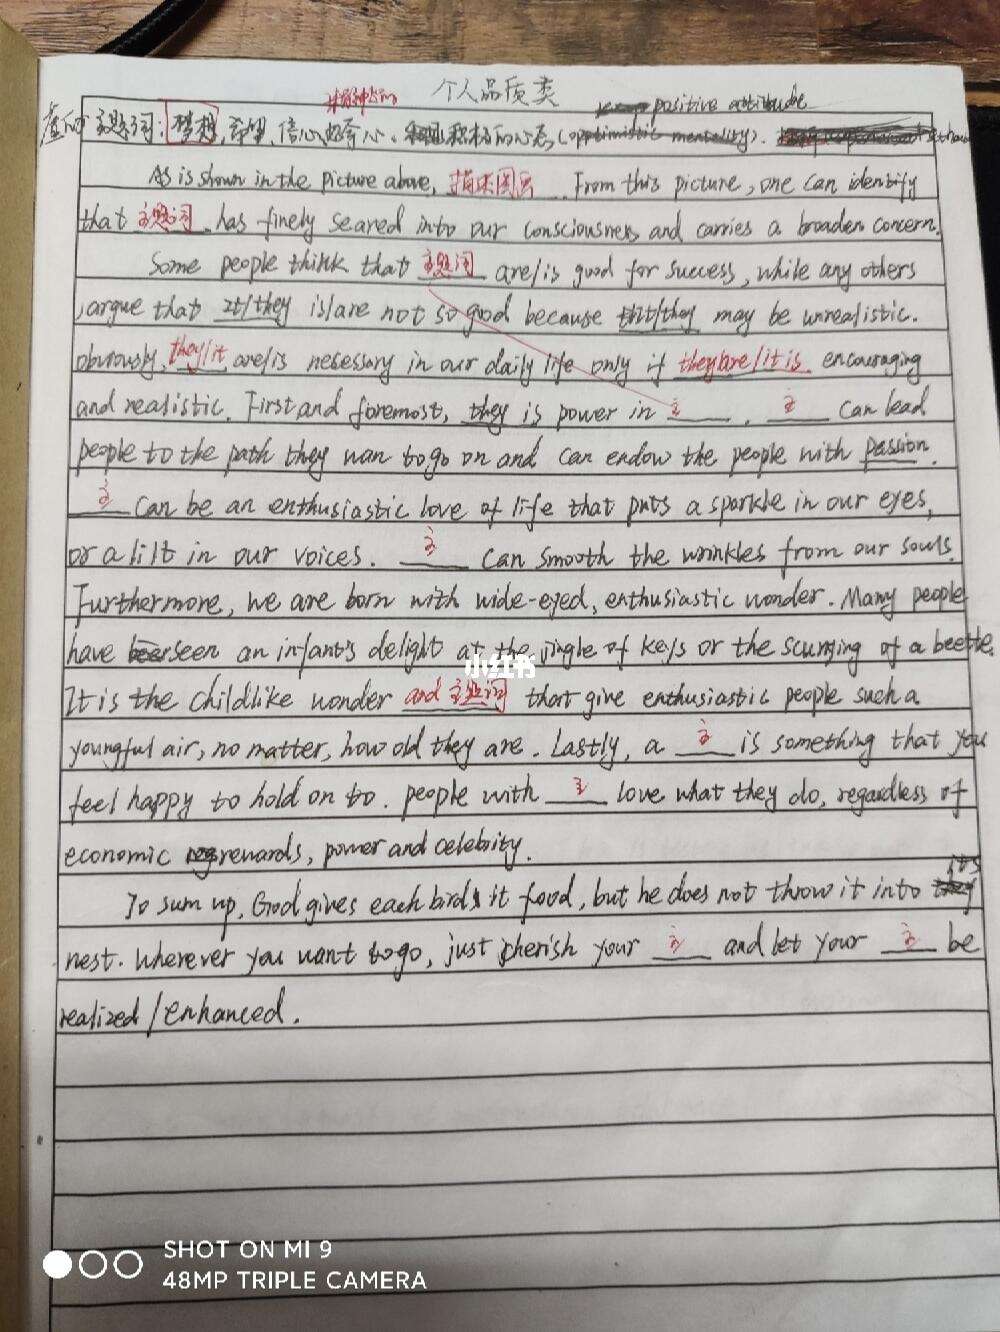 个人品质类
精神类的
positive attitude
主题词：梦想，希望，信心，好奇心，积极的心态，(optimistic mentality).
As is shown in the picture above, 描述图画 From this picture, one can identify
that 主题词 has finely seared into our consciousness and carries a broaden concern.
Some people think that 主题词 are/is good for success, while any others
argue that It/they is/are not so good because it/they may be unrealistic.
obviously, they/it are/is necessary in our daily life only if they are/it is encouraging
and realistic. First and foremost, they is power in 主 . 主 can lead
people to the path they wan to go on and can endow the people with passion.
主 can be an enthusiastic love of life that puts a sparkle in our eyes,
or a lilt in our voices. 主 can smooth the wrinkles from our souls.
Furthermore, we are born with wide-eyed, enthusiastic wonder. Many people
have seen an infant's delight at the jingle of keys or the scurrying of a beetle.
It is the childlike wonder and 主题词 that give enthusiastic people such a
youngful air, no matter, how old they are. Lastly, a 主 is something that you
feel happy to hold on to. people with 主 love what they do, regardless of
economic rewards, power and celebrity.
To sum up, God gives each birds it food, but he does not throw it into its
nest. Wherever you want to go, just cherish your 主 and let your 主 be
realized/enhanced.
小红书
SHOT ON MI 9
48MP TRIPLE CAMERA